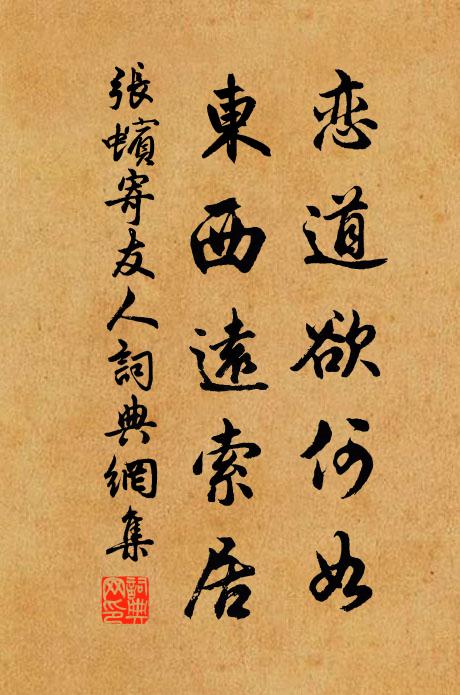 恋道欲何如
東西遠索居
張蠙寄友人詞典網集
詞典網印